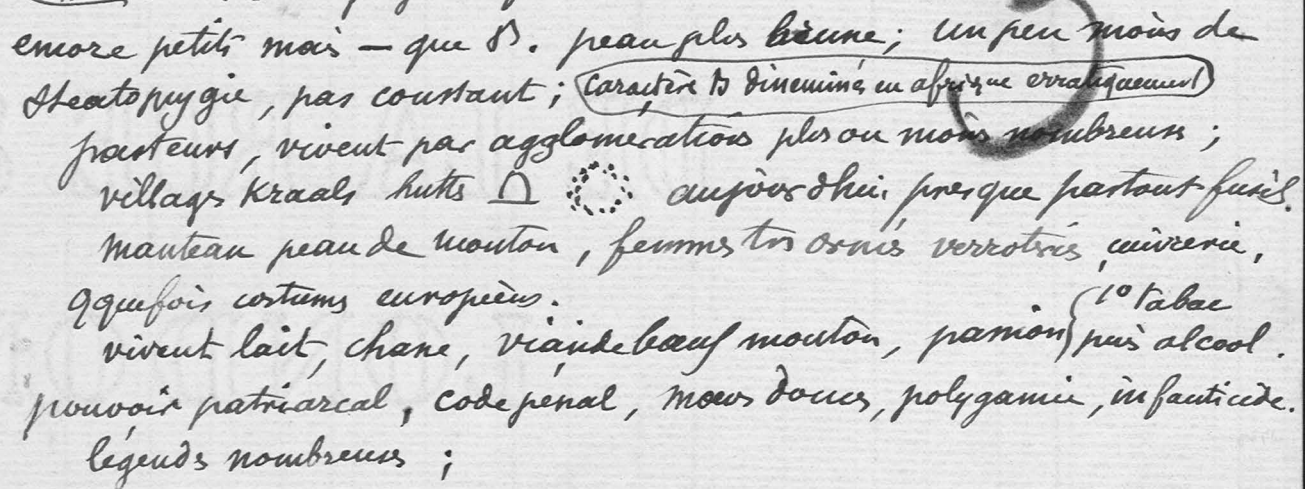 encore petits mais — que B. peau plus brune ; un peu moins de
steatopygie, pas constant ; caractère B disséminé en afrique erratiquement
pasteurs, vivent par agglomérations plus ou moins nombreuses ;
villages Kraals huttes aujourd'hui presque partout fusil.
manteau peau de mouton, femmes très ornées verroteries, cuivrerie,
qquefois costumes européens.
vivent lait, chasse, viande bœuf mouton, passion { 1° tabac
puis alcool.
pouvoir patriarcal, code pénal, mœurs douces, polygamie, infanticide.
légendes nombreuses ;